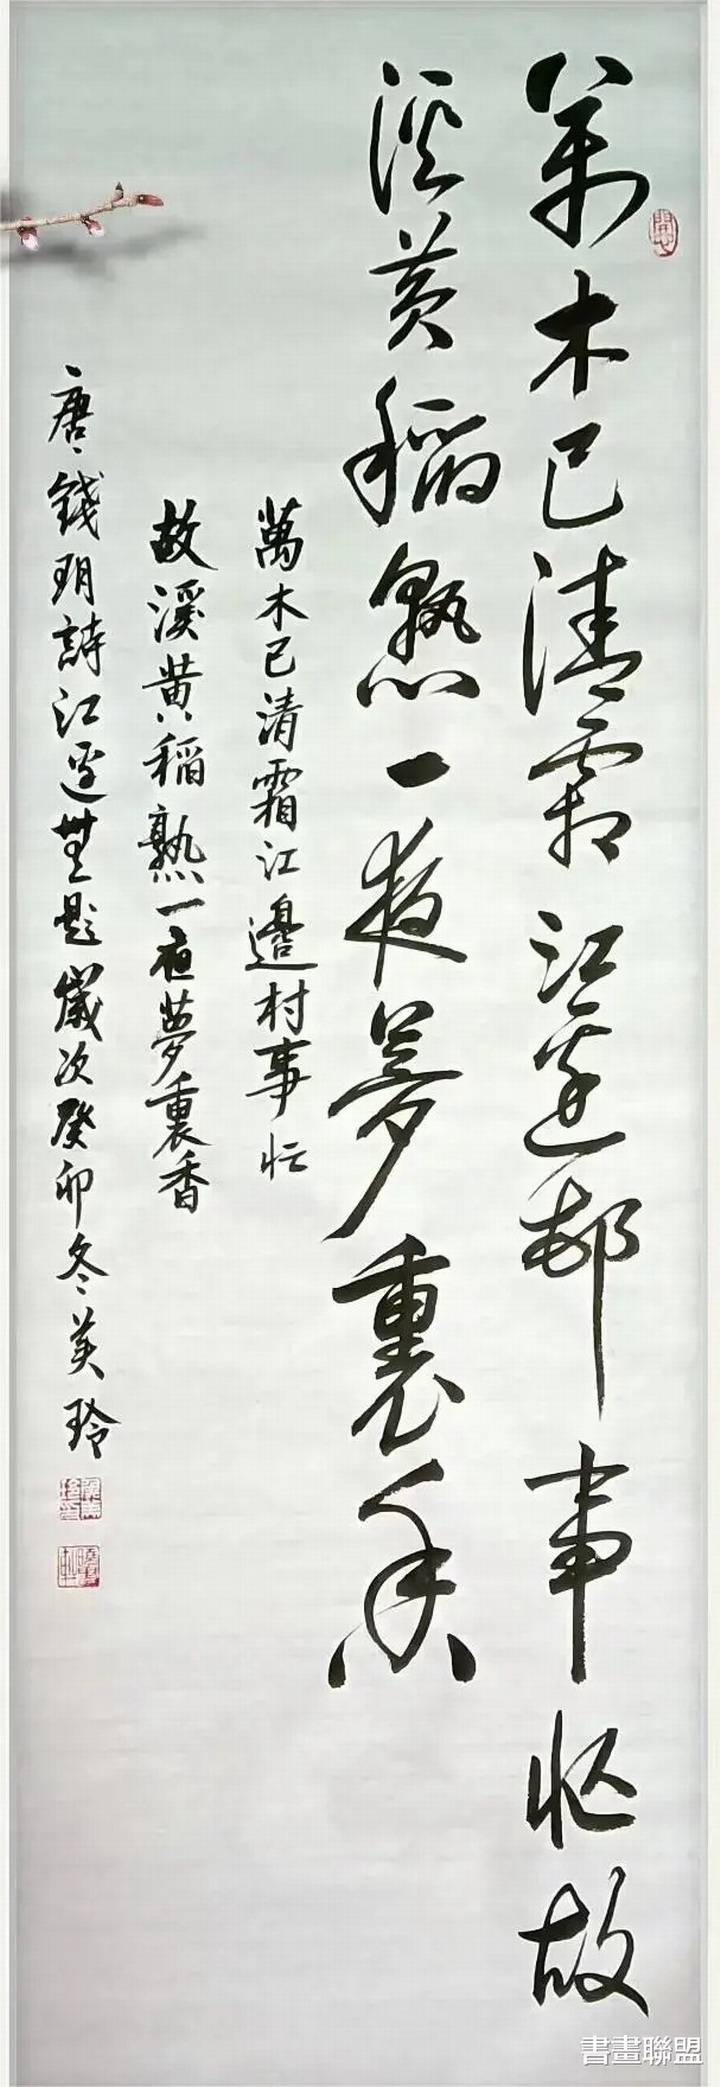 萬木已清霜江邊邨事忙故
溪黃稻熟一夜夢裏香
萬木已清霜江邊村事忙
故溪黃稻熟一夜夢裏香
唐錢珝詩江邊無題歲次癸卯冬美玲
書畫聯盟